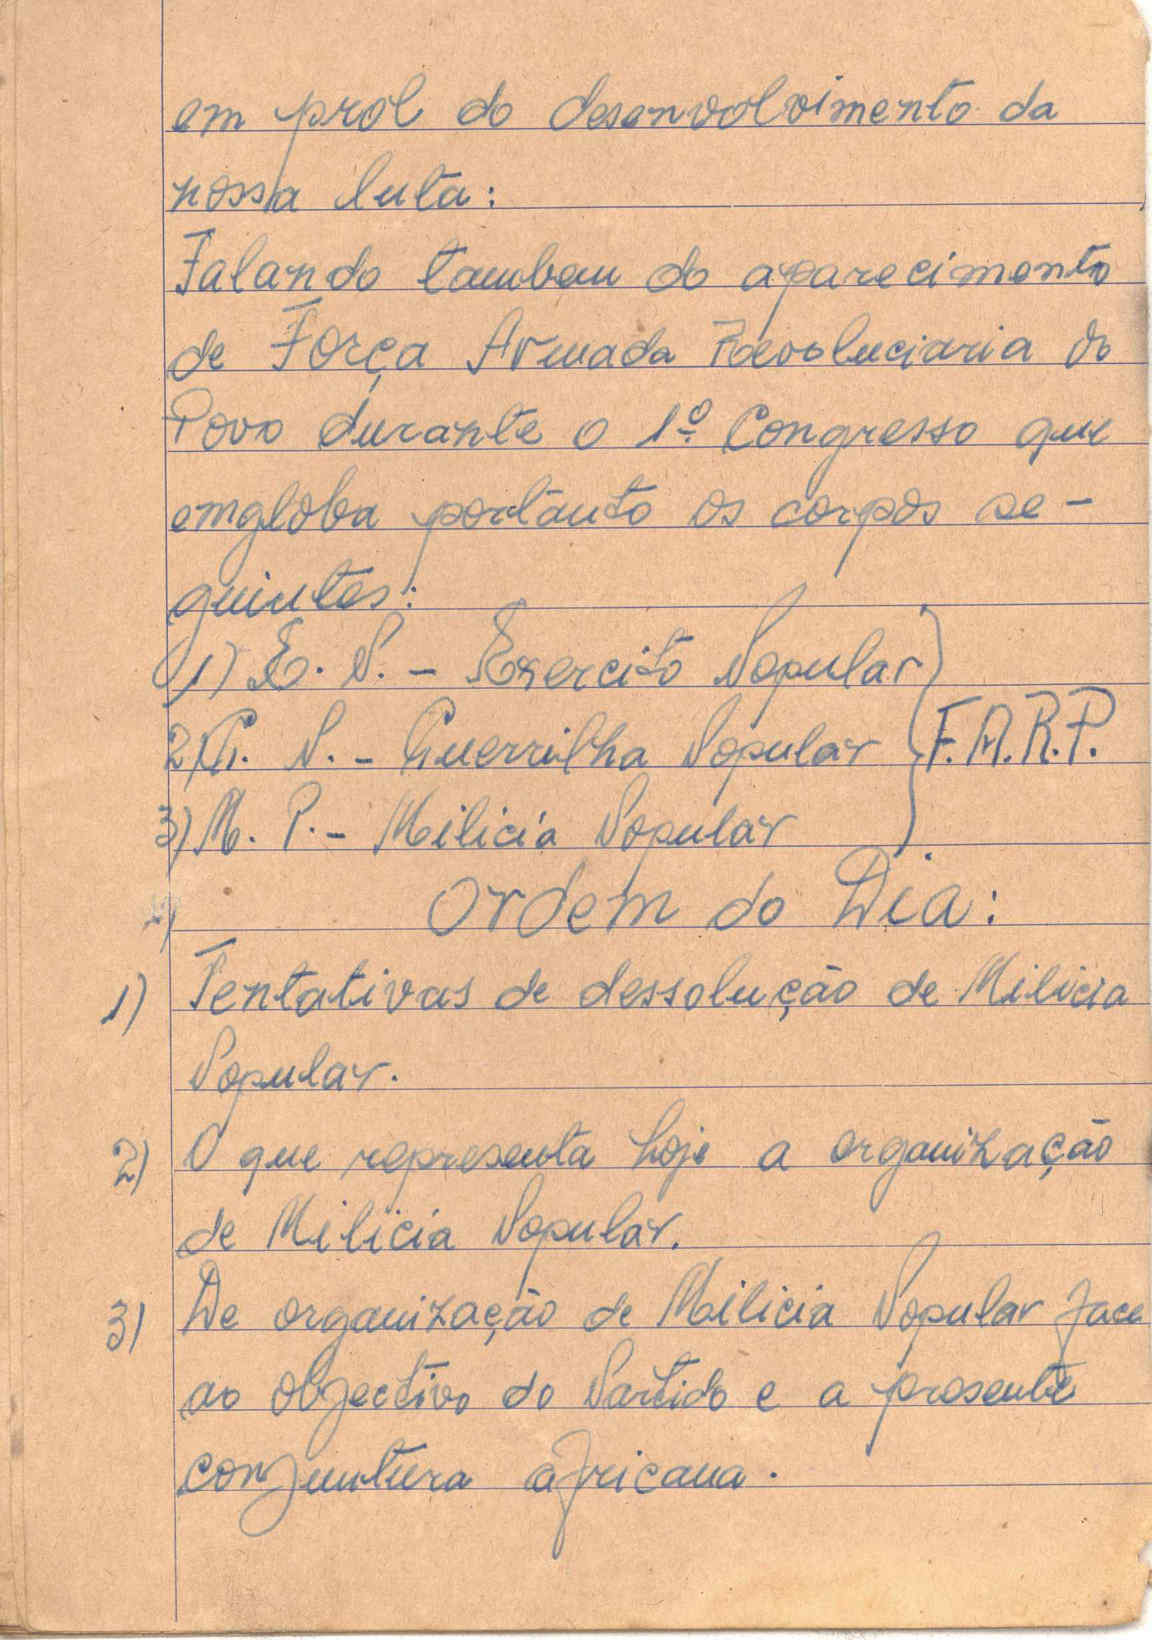 em prol do desenvolvimento da
nossa luta:
Falando tambem do aparecimento
de Força Armada Revoluciaria do
Povo durante o 1º Congresso que
emgloba portanto os corpos se-
guintes:
1) E. P. - Exercito Popular
2) G. P. - Guerrilha Popular } F.A.R.P.
3) M. P. - Milicia Popular
Ordem do Dia:
1) Tentativas de dessolução de Milicia
Popular.
2) O que representa hoje a organização
de Milicia Popular.
3) De organização de Milicia Popular face
ao objectivo do Partido e a presente
conjuntura africana.